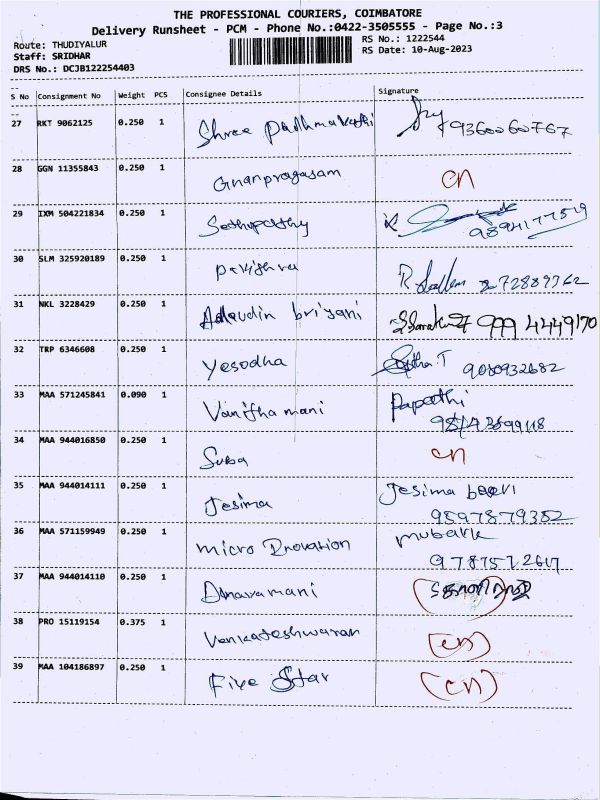 THE PROFESSIONAL COURIERS, COIMBATORE
Delivery Runsheet - PCM - Phone No.:0422-3505555 - Page No.:3
Route: THUDIYALUR
RS No.: 1222544
Staff: SRIDHAR
RS Date: 10-Aug-2023
DRS No.: DCJB122254403
S No Consignment No Weight PCS Consignee Details Signature
27 RKT 9062125 0.250 1 Shree Padhmakathi 9360060767
28 GGN 11355843 0.250 1 Gnanpragasam en
29 IXM 504221834 0.250 1 Sathupathy 9894177519
30 SLM 325920189 0.250 1
31 NKL 3228429 0.250 1 briyani 999 4449170
32 TRP 6346608 0.250 1 Yesodha 9080932682
33 MAA 571245841 0.090 1 Vanitha mani Papathi
34 MAA 944016850 0.250 1 Suba en
35 MAA 944014111 0.250 1 Jesima Jesima beevi
9597879352
36 MAA 571159949 0.250 1 micro Dnovation mubarak
37 MAA 944014110 0.250 1 Dhavamani
38 PRO 15119154 0.375 1 Venkateshwaran (en)
39 MAA 104186897 0.250 1 Five Star (en)